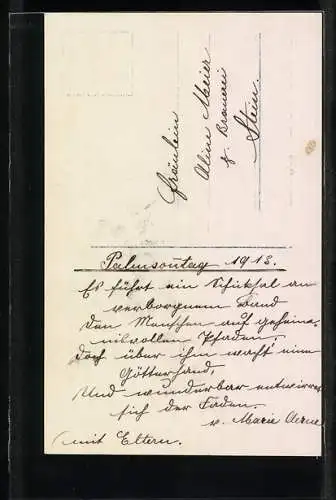 Fräulein
Aline Meier
z. Brauerei
Stein.
Palmsontag 1913.
Es führt ein Schiksal an
verborgnem Band
den Menschen auf geheim-
nisvollen Pfaden.
Doch über ihm wacht eine
Götterhand,
Und wunderbar entwirret
sich der Faden.
v. Marie
(mit Eltern.